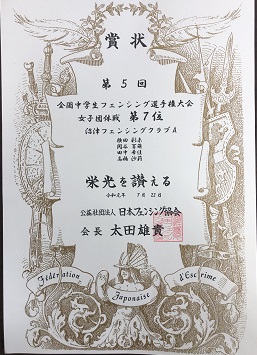 賞状
第5回
全国中学生フェンシング選手権大会
女子団体戦 第7位
沼津フェンシングクラブA
栄光を讃える
令和元年 7月 23日
公益社団法人 日本フェンシング協会
会長 太田雄貴
Fédération Japonaise d'Escrime